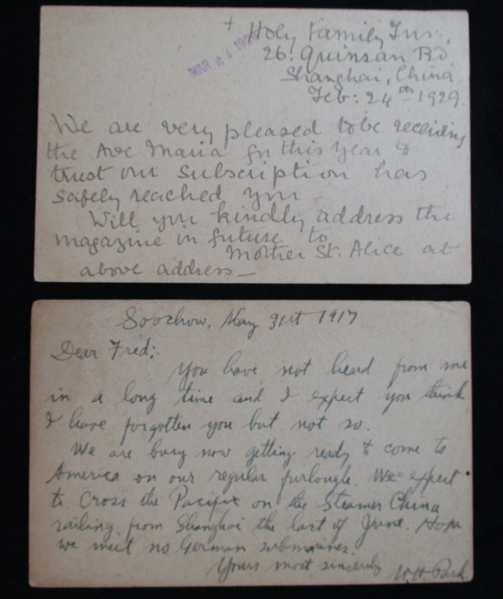 + Holy Family Ins.,
MAR 21 192
26. Quinsan Rd
Shanghai, China.
Feb: 24th 1929.
We are very pleased to be receiving
the Ave Maria for this year &
trust our Subscription has
safely reached you —
Will you kindly address the
magazine in future to
Mother St. Alice at
above address —
Soochow, May 31st 1917
Dear Fred:
You have not heard from me
in a long time and I expect you think
I have forgotten you but not so.
We are busy now getting ready to come to
America on our regular furlough. We expect
to cross the Pacific on the Steamer China
sailing from Shanghai the last of June. Hope
we meet no German submarines.
Yours most sincerely
W.H. Park